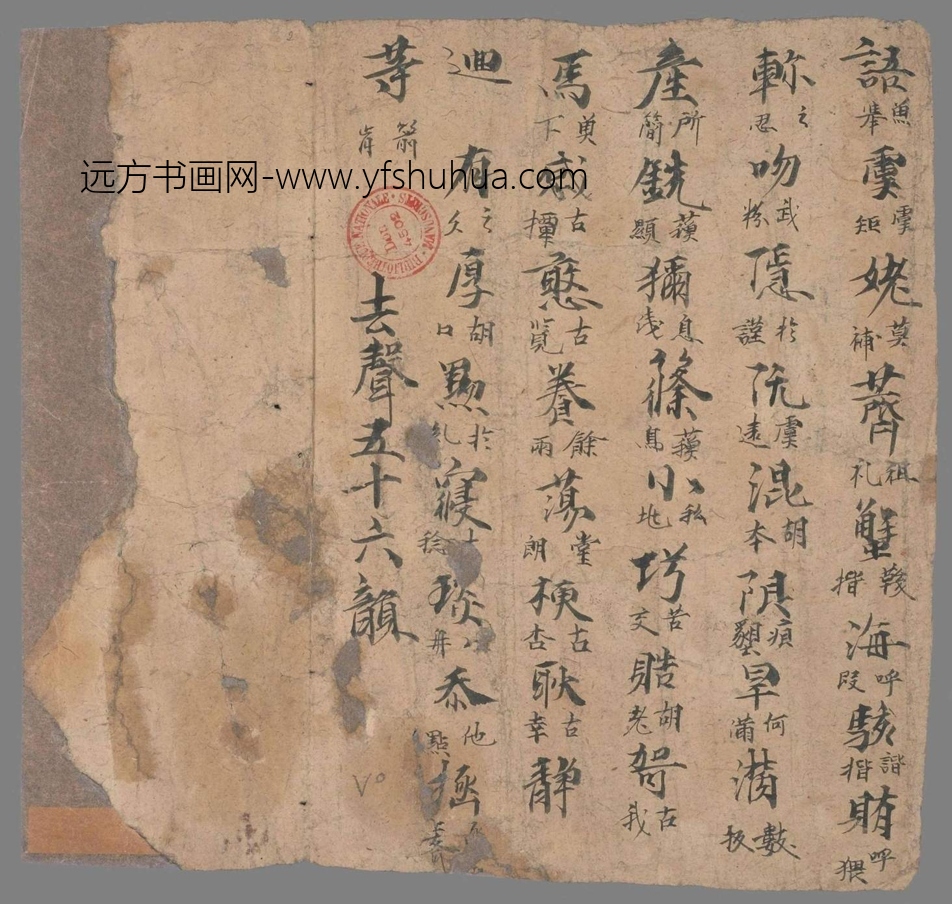 語魚舉虞虞矩姥莫補薺祖礼蟹鞵揩海呼改駭諧揩賄呼猥
軫之忍吻武粉隱於謹阮虞遠混胡本旱何滿潸數板
產所簡銑蘇顯獮息淺篠蘇鳥小私兆巧苦交晧胡老哿古我
馬莫下敢古覃養餘兩蕩堂朗梗古杏耿古幸靜
迥有之久厚胡口黝於糺寑稔琰冉忝他點
等箭肯
去聲五十六韻
远方书画网-www.yfshuhua.com
BIBLIOTHÈQUE NATIONALE MANUSCRITS
DON 4502
V°